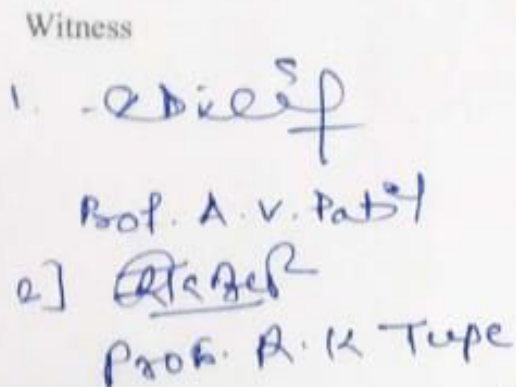 Witness
1.
Prof. A. V. Patil
2]
Prof. R. K Tupe